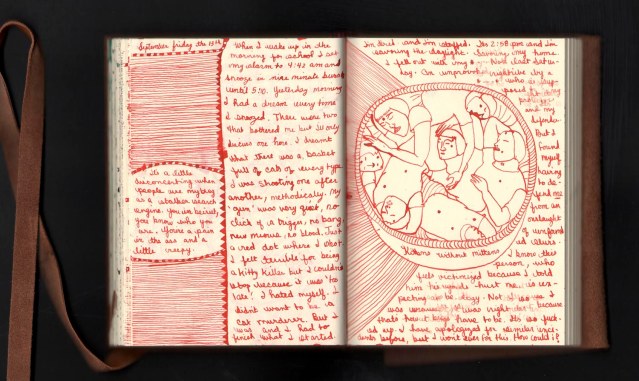 September friday the 13th
its a little
disconcerting when
people use my blog
as a stalker search
engine. You im breist,
you know who you
are. You're a pain
in the ass and a
little creepy.
When I wake up in the
morning for school I set
my alarm to 4:42 am and
snooze in nine minute
until 5:10. Yesterday morning
I had a dream every time
I snoozed. There were two
that bothered me but Ill only
discuss one here. I dreamt
that there was a basket
full of cats of every type
I was shooting one after
another, methodically. My
"gun" was very quiet, no
click of a trigger, no bang,
new minus, no blood. Just
a red dot where I shot.
I felt terrible for being
a kitty killer but I couldn't
stop because it was "too
late". I hated myself, I
didn't want to be a
cat murderer. But I
was and I had to
finish what I started.
Im tired and im stuffed. Its 2:58 pm and Im
savoring the daylight. Savoring my home.
I fell out with my Noel last Satur-
day. An unprovoked by a
who
posed
and my
But I
found
myself
having
to de-
fend me
from an
onslaught
of unfound
ed
Kittens without mittens I know this
person, who
feels victimized because I told
him his words hurt me, is ex-
pecting an apology. Not
was it was right because
thats how have to be. Its so fuck-
ed up. I have apologized for similar inci-
dents before, but I wont ever for this. How could I?